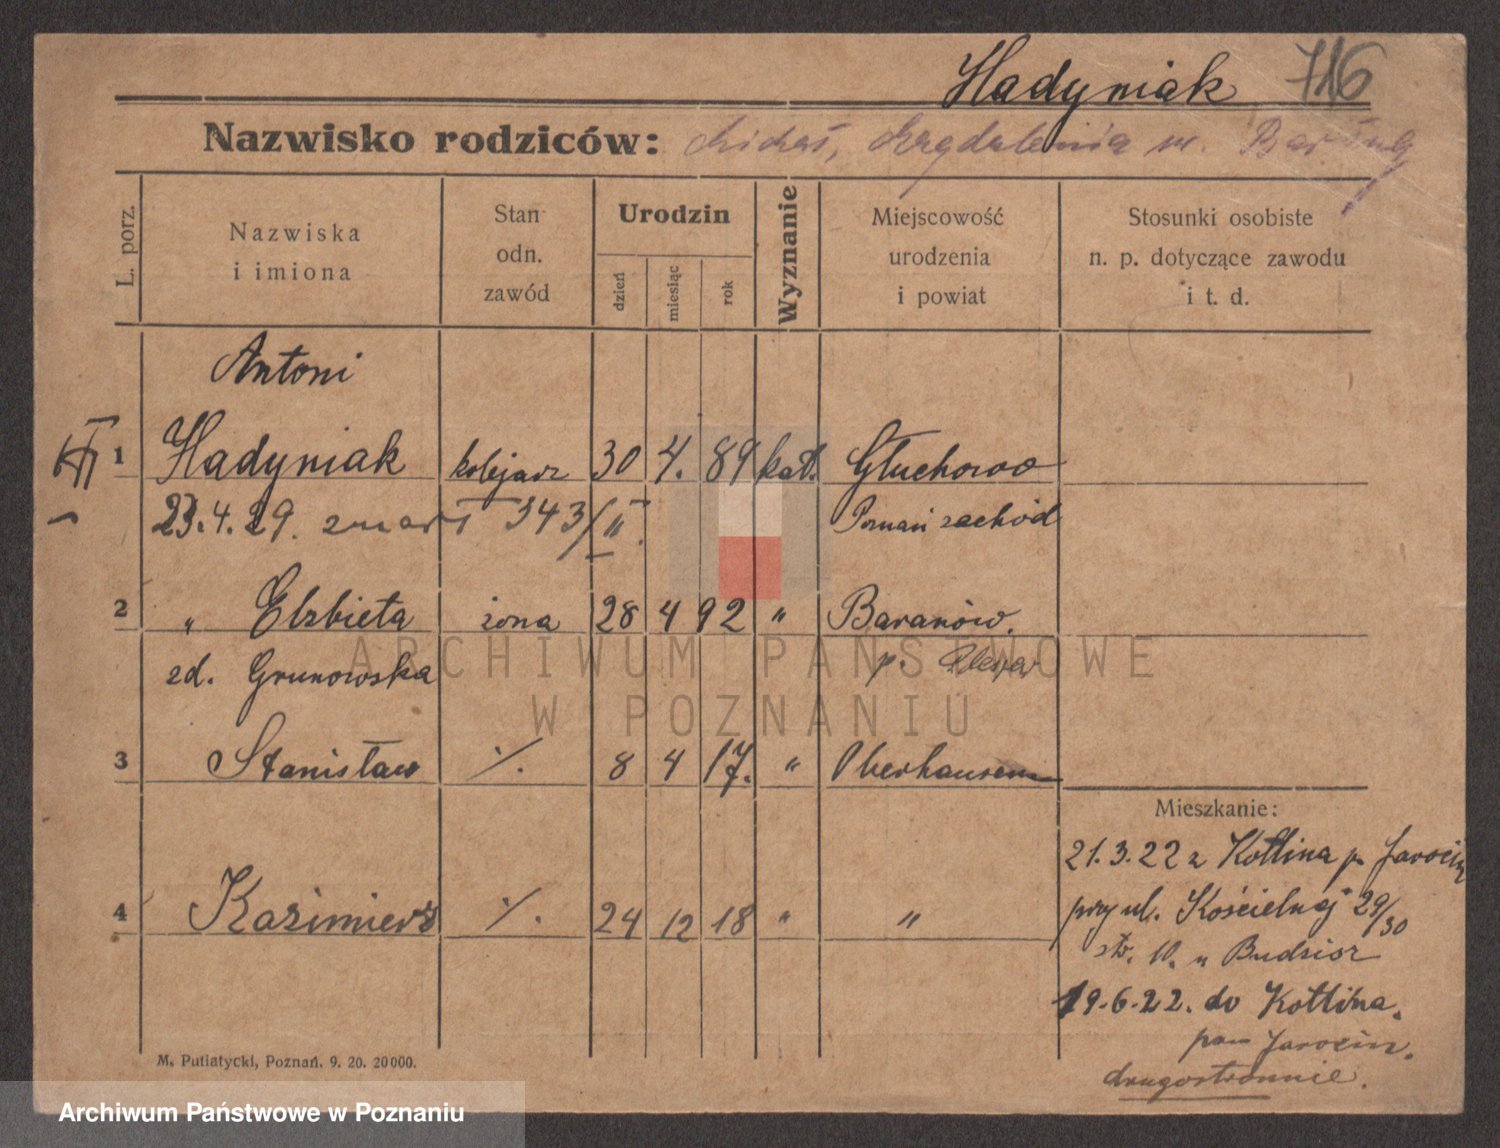 Hadyniak 716
Nazwisko rodziców: Michał, Magdalenia
L. porz.
Nazwiska
i imiona
Stan
odn.
zawód
Urodzin
dzień
miesiąc
rok
Wyznanie
Miejscowość
urodzenia
i powiat
Stosunki osobiste
n. p. dotyczące zawodu
i t. d.
Antoni
1 Hadyniak kolejarz 30 4. 89 kat. Głuchowo
23.4.29. zmarł 343/II. Poznań zachód
2 " Elzbieta żona 28 4 92 " Baranów.
zd. Grunowska p.
3 Stanisław ·/. 8 4 17. " Oberhausen
Mieszkanie:
21.3.22 z Kotlina p. Jarocin
4 Kazimierz ·/. 24 12 18 " "
przy ul. Kościelnej 29/30
str. 10. u Budzior
19.6.22. do Kotlina.
pow Jarocin.
drugostronnie.
M. Putiatycki, Poznań. 9. 20. 20000.
ARCHIWUM PAŃSTWOWE
W POZNANIU
Archiwum Państwowe w Poznaniu